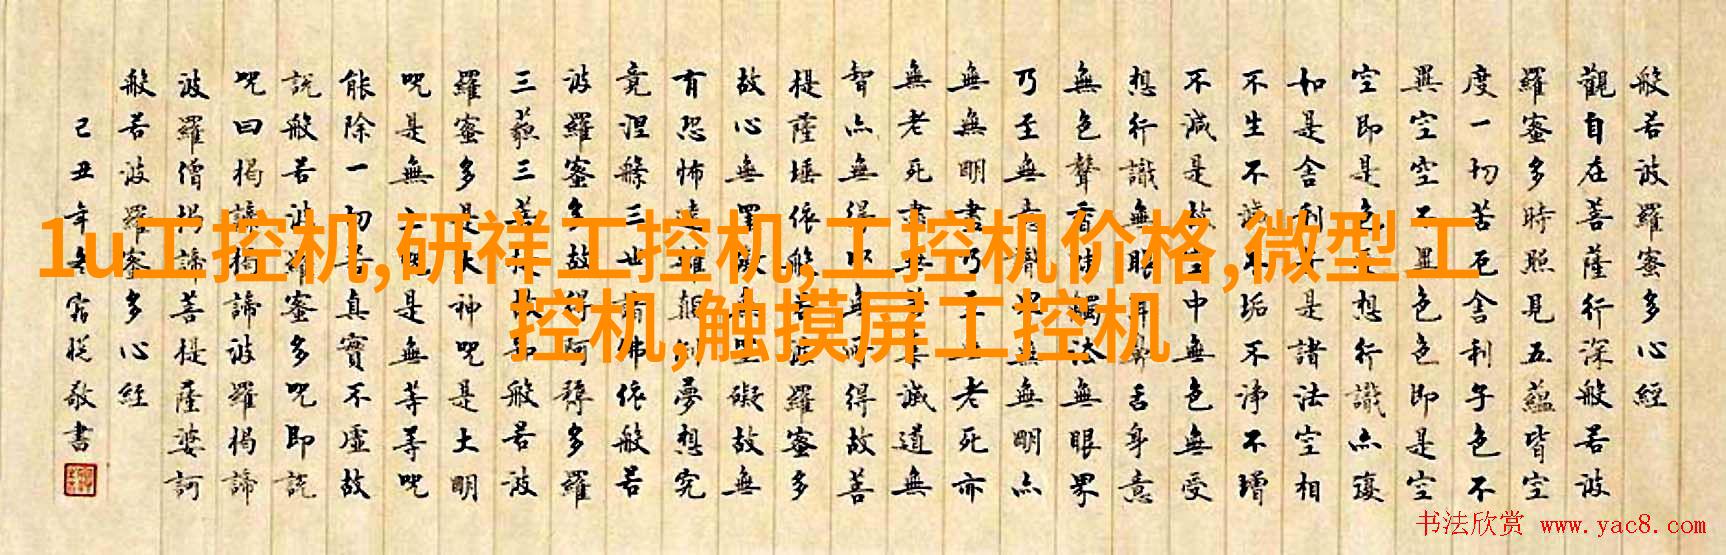 般若波羅蜜多心經
觀自在菩薩行深般若波
羅蜜多時照見五蘊皆空
度一切苦厄舍利子色不
異空空不異色色即是空
空即是色受想行識亦復
如是舍利子是諸法空相
不生不滅不垢不淨不增
不減是故空中無色無受
想行識無眼耳鼻舌身意
無色聲香味觸法無眼界
乃至無意識界無無明亦
無無明盡乃至無老死亦
無老死盡無苦集滅道無
智亦無得以無所得故菩
提薩埵依般若波羅蜜多
故心無罣礙無罣礙故無
有恐怖遠離顛倒夢想究
竟涅槃三世諸佛依般若
波羅蜜多故得阿耨多羅
三藐三菩提故知般若波
羅蜜多是大神咒是大明
咒是無上咒是無等等咒
能除一切苦真實不虛故
說般若波羅蜜多咒即說
咒曰揭諦揭諦波羅揭諦
波羅僧揭諦菩提薩婆訶
般若波羅蜜多心經
己丑年冬敬書
1u工控机,研祥工控机,工控机价格,微型工
控机,触摸屏工控机
书法欣赏 www.yac8.com